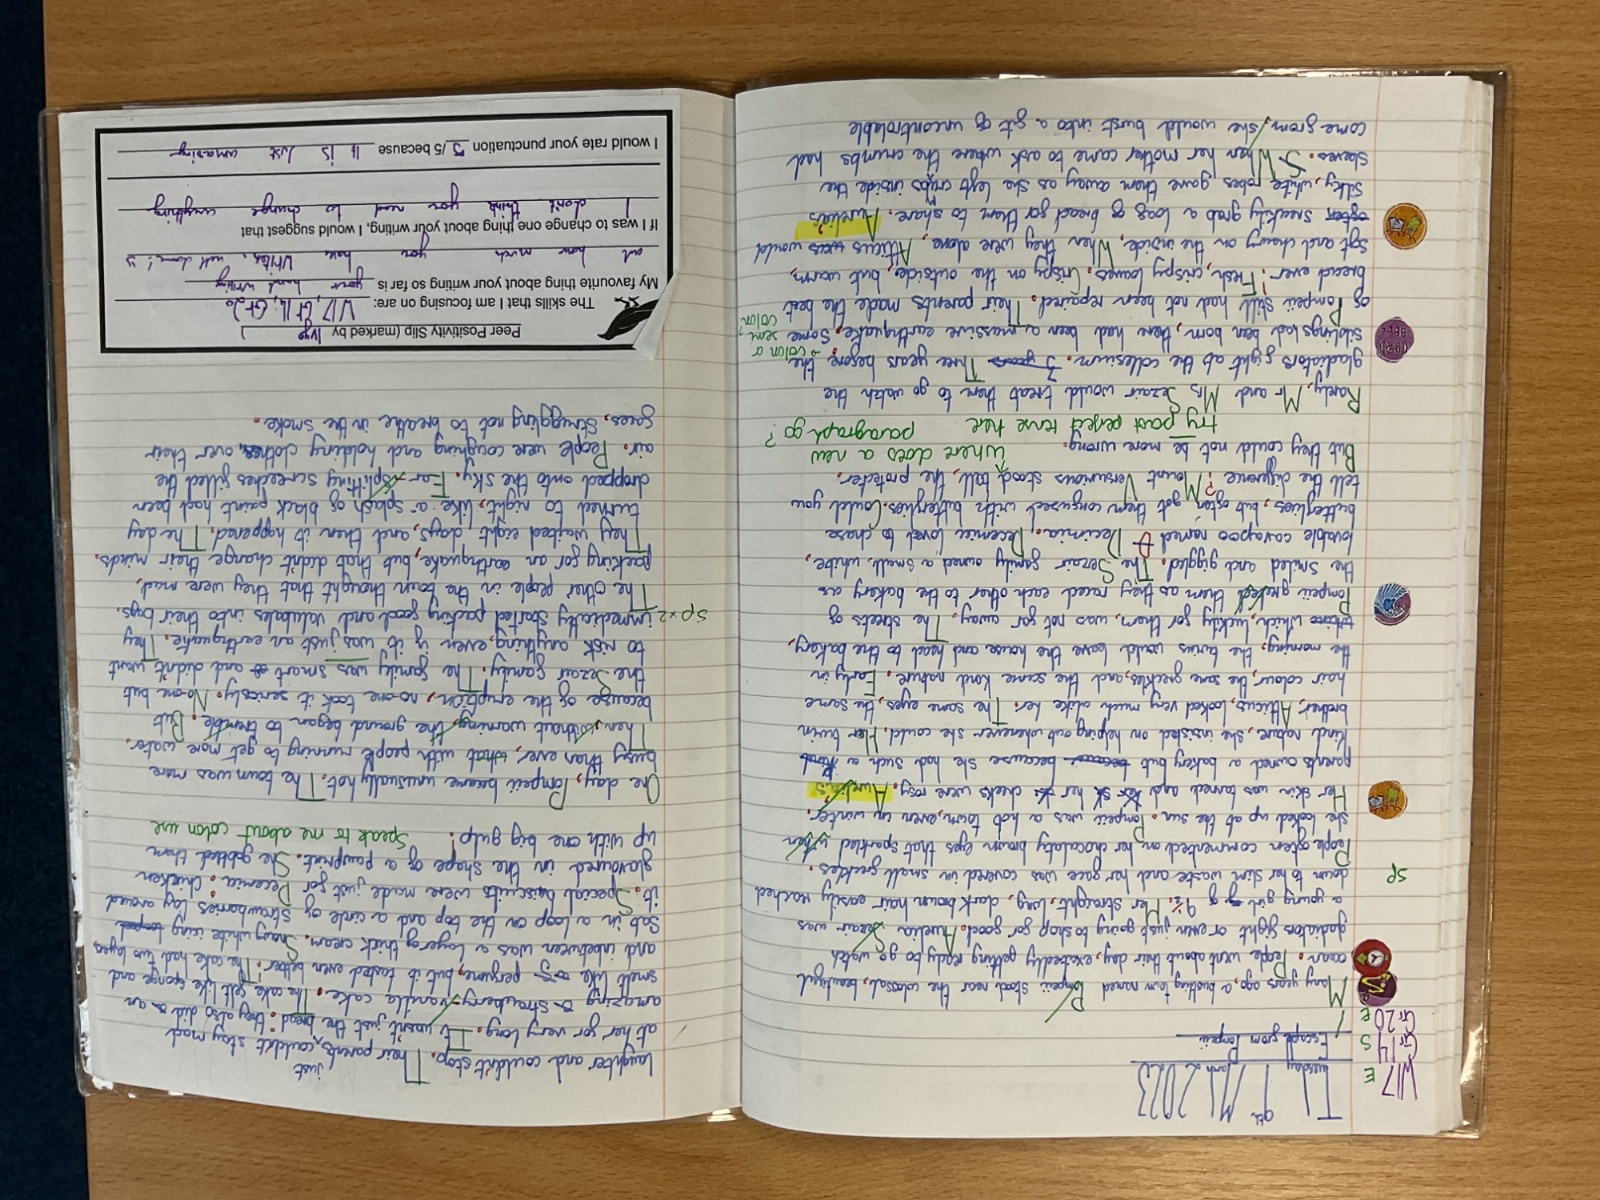 W17 E
Gr14 S
Gr20 E
Tuesday 9th March 2023
Escape from Pompeii
Many years ago, a bustling town named Pompeii stood near the colossal, beautiful
ocean. People went about their day, excitedly getting ready to go watch
gladiators fight or even just going to shop for food. Aurelia Sezair was
a young girl of 9½. Her straight, long, dark brown hair easily reached
down to her slim waste and her face was covered in small freckles.
sp
People often commented on her chocolaty brown eyes that sparkled when
she looked up at the sun. Pompeii was a hot town, even in winter.
Her skin was tanned and her cheeks were rosy. Aurelia's
parents owned a bakery but because she had such a
kind nature, she insisted on helping out whenever she could. Her twin
brother, Atticus, looked very much alike her. The same eyes, the same
hair colour, the same freckles, and the same kind nature. Early in
the morning, the twins would leave the house and head to the bakery,
which, luckily for them, was not far away. The streets of
Pompeii greeted them as they raced each other to the bakery as
the smiled and giggled. The Sezair family owned a small, white,
lovable cavapoo named Decimia. Decemia loved to chase
butterflies, but often got them confused with butterflies. Could you
tell the diffrence? Mount Versuvious stood tall, the protecter.
But they could not be more wrong.
Where does a new paragraph go?
try past perfect tense here
Rarely, Mr and Mrs Sezair would treat them to go watch the
gladiators fight at the collesium. Three years before the
→ colon or semi colon?
siblings had been born, there had been a massive earthquake. Some
of Pompeii still had not been repaired. Their parents made the best
bread ever! Fresh, crispy loaves. Crispy on the outside, but warm,
soft and chewy on the inside. When they were alone, Atticus would
sneakily grab a loaf of bread for them to share. Aurelia's
silky, white robes gave them away as she left crumbs inside the
sleeves. When her mother came to ask where the crumbs had
come from, she would burst into a fit of uncontrolable
laughter and couldn't stop. Their parents just couldn't stay mad
at her for very long. It wasn't just the bread: they also did an
amazing strawberry-vanilla cake. The cake felt like sponge and
smelt like perfume, but it tasted even better. The cake had two layers
and inbetween was a layer of thick cream. Snowy white icing
sat in a loop on the top and a circle of strawbaries lay around
it. Special buiscuits were made just for Decemia: chicken
flavoured in the shape of a pawprint. She gobbled them
up with one big gulp!
Speak to me about colon use
One day, Pompeii became unusually hot. The town was more
busy than ever, with people running to get more water.
Then, without warning, the ground began to tremble. But
because of the eruption, no-one took it seriosly. No-one but
the Sezair family. The family was smart and didn't want
to risk anything, even if it was just an earthquake. They
immedieatly started packing food and valubales into their bags.
sp x2
The other people in the town thought that they were mad,
packing for an earthquake, but that didn't change their minds.
They waited eight days, and then it happened. The day
turned to night, like a splash of black paint had been
dropped onto the sky. Ear-splitting screeches filled the
air. People were coughing and holding clothes over their
faces, struggling not to breathe in the smoke.
Peer Positivity Slip (marked by Ivyo)
The skills that I am focusing on are: W17, Gr14, Gr20
My favourite thing about your writing so far is your hand writing
and how much you have writen, well done! :)
If I was to change one thing about your writing, I would suggest that
I don't think you need to change anything
I would rate your punctuation 5 /5 because it is just amazing